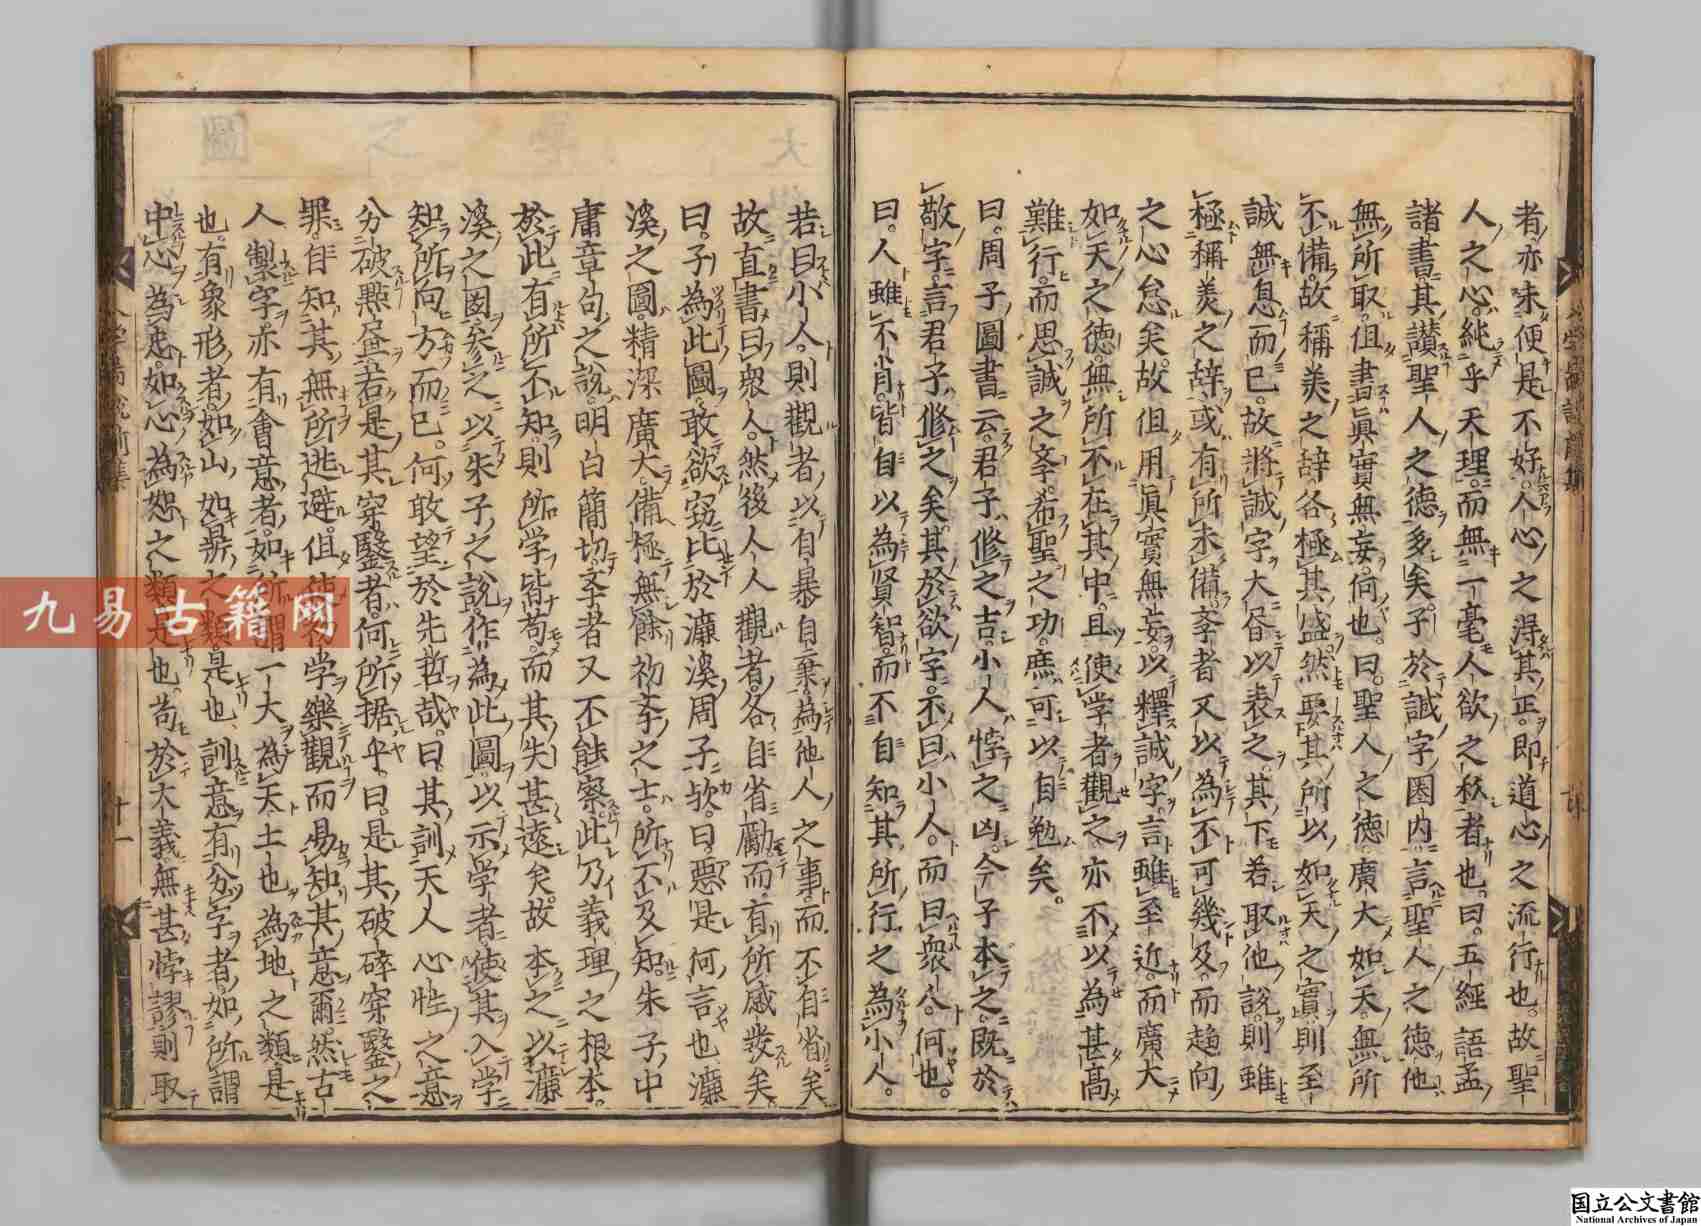 者亦未便是不好人心之得其正即道心之流行也故聖
人之心純乎天理而無一毫人欲之私者也曰五經語孟
諸書其讃聖人之德多矣子於誠字圈内言聖人之德他
無所取但書眞實無妄何也曰聖人之德廣大如天無所
不備故稱美之辞各極其盛然要其所以如天之實則至
誠無息而已故將誠字大各以表之其下若取他說則雖
極稱美之辞或有所未備斈者又以為不可幾及而趨向
之心怠矣故但用眞實無妄以釋誠字言雖至近而廣大
如天之德無所不在其中且使学者觀之亦不以為甚高
難行而思誠之斈希聖之功庶可以自勉矣
曰周子圖書云君子修之吉小人悖之凶今子本之既於
敬字言君子修之矣其於欲字不曰小人而曰衆人何也
曰人雖不肖皆自以為賢智而不自知其所行之為小人
若曰小人則觀者以自暴自棄為他人之事而不自省矣
故直書曰衆人然後人人觀者各自省勵而有所感發矣
曰子為此圖敢欲窃比於濂溪周子欤曰惡是何言也濂
溪之圖精深廣大備極無餘初斈之士所不及知朱子中
庸章句之說明白簡切斈者又不能察此乃義理之根本
於此有所不知則所学皆苟而其失甚遠矣故本之以濂
溪之圖參之以朱子之說作為此圖以示学者使其入学
知所向方而已何敢望於先哲哉曰其訓天人心性之意
分破點畫若是其穿鑿者何所據乎曰是其破碎穿鑿之
罪自知其無所逃避但使初学樂觀而易知其意爾然古
人製字亦有會意者如所謂一大為天土也為地之類是
也有象形者如山如泉之類是也訓意有分字者如所謂
中心為忠如心為恕之類是也苟於大義無甚悖謬則取
九易古籍网
国立公文書館
National Archives of Japan